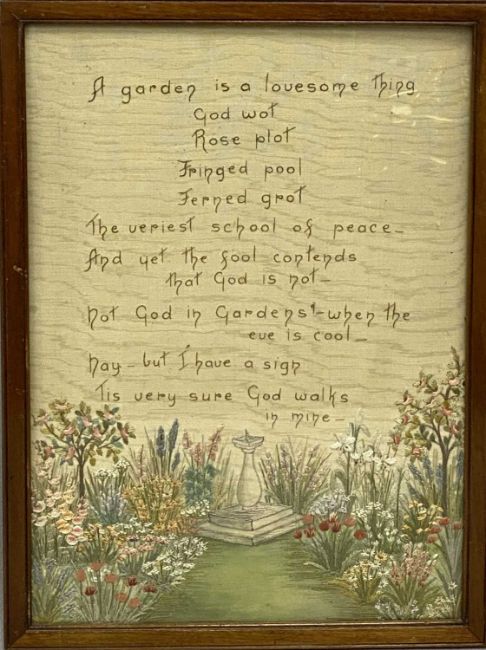 A garden is a lovesome thing
God wot
Rose plot
Fringed pool
Ferned grot
The veriest school of peace—
And yet the fool contends
that God is not—
Not God in Gardens!—when the
eve is cool—
Nay—but I have a sign
Tis very sure God walks
in mine—